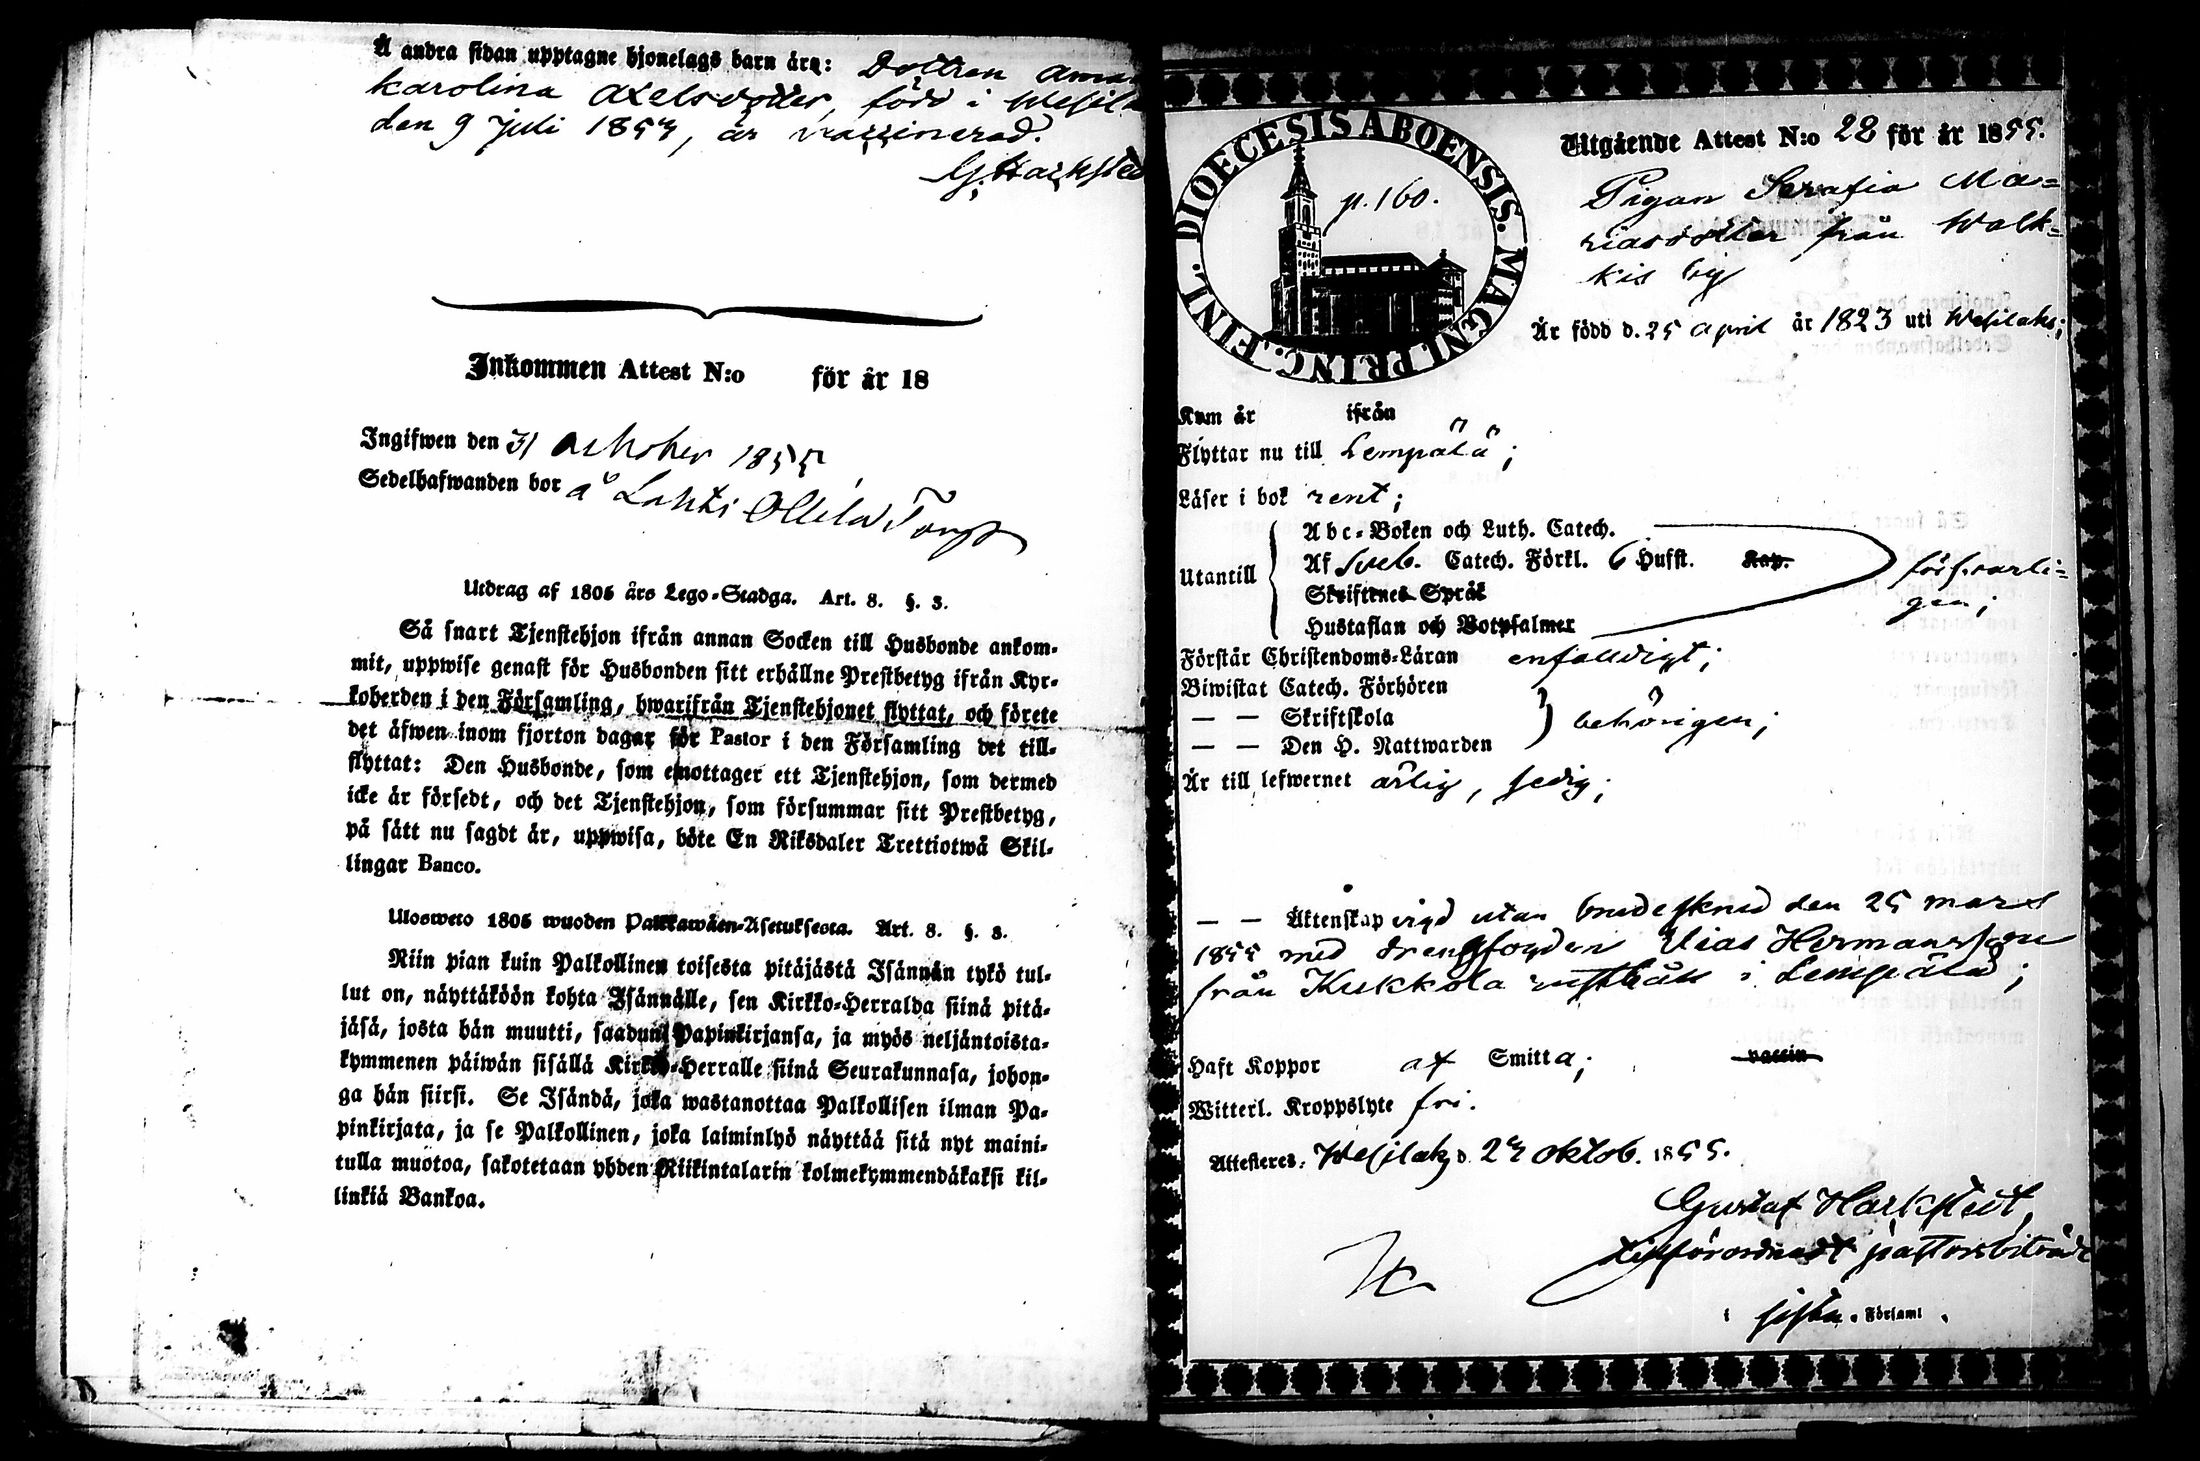 Å andra sidan upptagne hjonelags barn äro: Dottren Aman
Karolina Axelsdotter, född i Wesila
den 9 Juli 1854, är vaccinerad.
G. Harksted
Inkommen Attest N:o för år 18
Ingifwen den 31 October 1855
Sedelhafwanden bor å Lahti Ollila Torp
Utdrag af 1805 års Lego-Stadga. Art. 8. §. 3.
Så snart Tjenstehjon ifrån annan Socken till Husbonde ankom-
mit, uppwise genast för Husbonden sitt erhållne Prestbetyg ifrån Kyr-
koherden i den Församling, hwarifrån Tjenstehjonet flyttat, och förete
det äfwen inom fjorton dagar för Pastor i den Församling det till-
flyttat: Den Husbonde, som emottager ett Tjenstehjon, som dermed
icke är försedt, och det Tjenstehjon, som försummar sitt Prestbetyg,
på sätt nu sagdt är, uppwisa, böte En Riksdaler Trettiotwå Skil-
lingar Banco.
Ulosweto 1805 wuoden Palkkawäen-Asetuksesta. Art. 8. §. 3.
Niin pian kuin Palkollinen toisesta pitäjästä Isännän tykö tul-
lut on, näyttäköön kohta Isännälle, sen Kirkko-Herralda siinä pitä-
jäsä, josta hän muutti, saadun Papinkirjansa, ja myös neljäntoista-
kymmenen päiwän sisällä Kirkko-Herralle siinä Seurakunnasa, johon-
ga hän siirsi. Se Isändä, joka wastanottaa Palkollisen ilman Pa-
pinkirjata, ja se Palkollinen, joka laiminlyö näyttää sitä nyt maini-
tulla muotoa, sakotetaan yhden Riikintalarin kolmekymmendäkaksi kil-
linkiä Bankoa.
DIOECESIS ABOENSIS. MAGNI PRINC. FINL.
p. 160.
Utgående Attest N:o 28 för år 1855.
Pigan Serafia Ma-
riasdotter från Walk-
kis by
Är född d. 25 April år 1823 uti Wesilaks;
Kom år ifrån
Flyttar nu till Lempälä;
Läser i bok rent;
Utantill
Abc-Boken och Luth. Catech.
Af Sveb. Catech. Förkl. 6 Hufst. Kap.
Skriftenes Språk
Hustaflan och Botpsalmer
försvarli-
gen;
Förstår Christendoms-Läran enfaldigt;
Biwistat Catech. Förhören
— — Skriftskola
— — Den H. Nattwarden
behörigen;
Är till lefwernet ärlig, sedig;
— — Äktenskap vigd utan brudeskrud den 25 mars
1855 med drengfogden Elias Hermansson
från Kukkola rusthåll i Lempälä;
Haft Koppor af Smitta; vaccin
Witterl. Kroppslyte fri.
Attesteres, Wesilaks d. 24 Oktob. 1855.
Gustaf Harkstedt,
tillförordnadt pastorsbiträde
i sista. Församl.